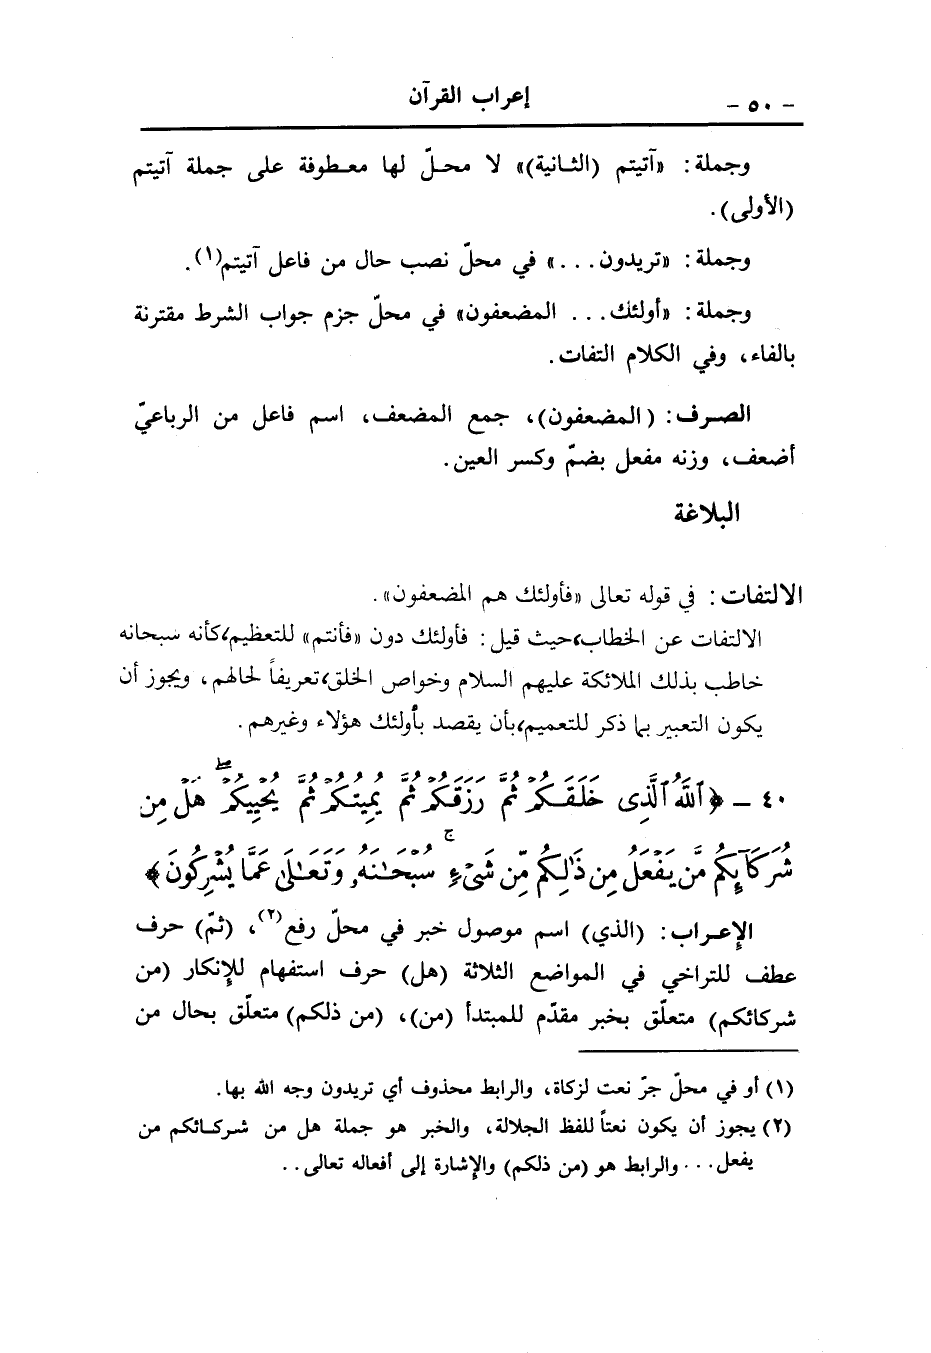 - ٥٠ - إعراب القرآن
وجملة: «آتيتم (الثانية)» لا محلّ لها معطوفة على جملة آتيتم
(الأولى).
وجملة: «تريدون...» في محلّ نصب حال من فاعل آتيتم(١).
وجملة: «أولئك... المضعفون» في محلّ جزم جواب الشرط مقترنة
بالفاء، وفي الكلام التفات.
الصرف: (المضعفون)، جمع المضعف، اسم فاعل من الرباعيّ
أضعف، وزنه مفعل بضمّ وكسر العين.
البلاغة
الالتفات: في قوله تعالى «فأولئك هم المضعفون».
الالتفات عن الخطاب، حيث قيل: فأولئك دون «فأنتم» للتعظيم، كأنه سبحانه
خاطب بذلك الملائكة عليهم السلام وخواص الخلق، تعريفاً لحالهم، ويجوز أن
يكون التعبير بما ذكر للتعميم، بأن يقصد بأولئك هؤلاء وغيرهم.
٤٠ - ﴿ٱللَّهُ ٱلَّذِى خَلَقَكُمْ ثُمَّ رَزَقَكُمْ ثُمَّ يُمِيتُكُمْ ثُمَّ يُحْيِيكُمْ ۖ هَلْ مِن
شُرَكَآئِكُم مَّن يَفْعَلُ مِن ذَٰلِكُم مِّن شَىْءٍ ۚ سُبْحَـٰنَهُۥ وَتَعَـٰلَىٰ عَمَّا يُشْرِكُونَ﴾
الإعراب: (الذي) اسم موصول خبر في محلّ رفع(٢)، (ثمّ) حرف
عطف للتراخي في المواضع الثلاثة (هل) حرف استفهام للإنكار (من
شركائكم) متعلّق بخبر مقدّم للمبتدأ (من)، (من ذلكم) متعلّق بحال من
(١) أو في محلّ جرّ نعت لزكاة، والرابط محذوف أي تريدون وجه الله بها.
(٢) يجوز أن يكون نعتاً للفظ الجلالة، والخبر هو جملة هل من شركائكم من
يفعل... والرابط هو (من ذلكم) والإشارة إلى أفعاله تعالى..